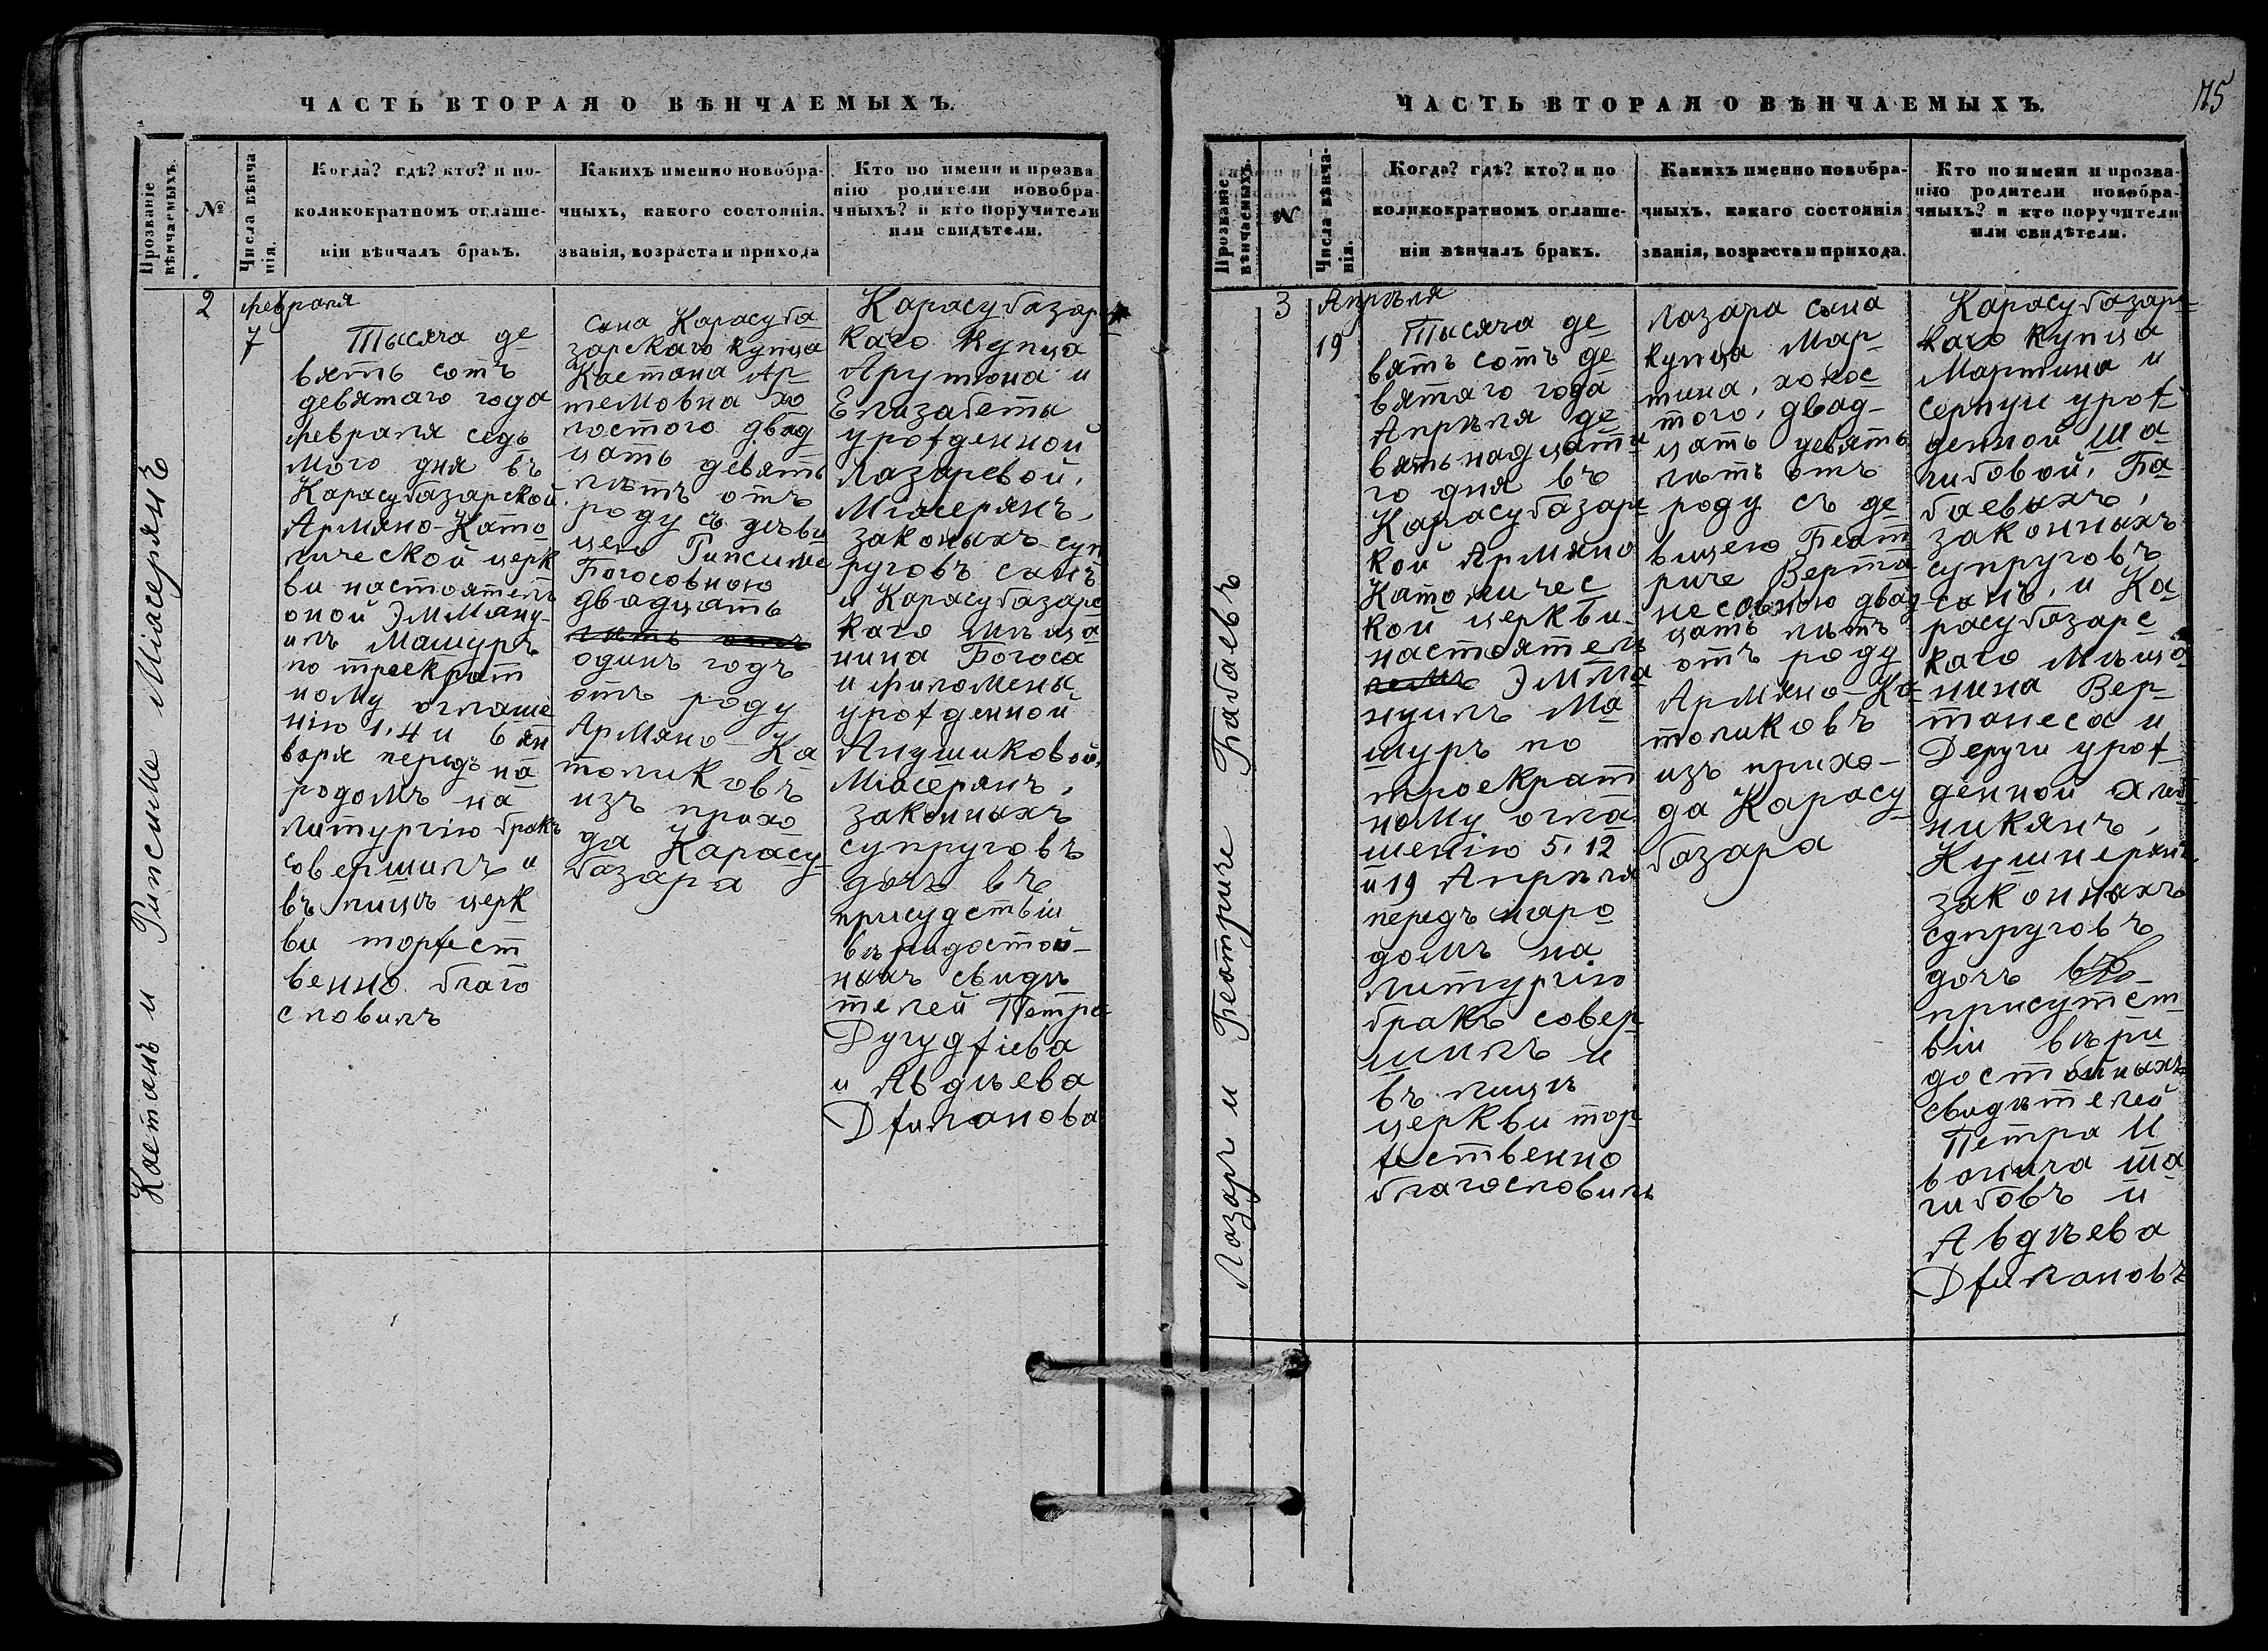 ЧАСТЬ ВТОРАЯ О ВѢНЧАЕМЫХЪ.
Прозваніе
вѣнчаемыхъ.
№
Числа вѣнча
нія.
Когда? гдѣ? кто? и по-
коликократномъ оглаше-
ніи вѣнчалъ бракъ.
Какихъ именно новобра-
чныхъ, какого состоянія.
званія, возраста и прихода
Кто по имени и прозва
нію родители новобра-
чныхъ? и кто поручители
или свидѣтели.
Каетанъ и Рипсиме Міасерянъ
2
февраля
7
Тысяча де
вять сотъ
девятаго года
февраля седь
мого дня въ
Карасубазарской
Армяно-Като
лической церк
ви настоятель
оной Эмману-
илъ Машуръ
по троекрат
ному оглаше
нію 1, 4 и 6 ян
варя передъ на
родомъ на
литургію бракъ
совершилъ и
въ лицѣ церк
ви торжест
венно благо
словилъ
Сына Карасуба
зарскаго купца
Каетана Ар
темовна хо
лостого двад
цать девять
лѣтъ отъ
роду съ дѣви
цею Рипсиме
Богосовною
двадцать
лѣтъ отъ
одинъ годъ
отъ роду
Армяно-Ка
толиковъ
изъ прихо
да Карасу
базара
Карасубазарс
каго купца
Арутюна и
Елизабеты
урожденной
Лазаревой,
Міасерянъ,
законыхъ суп
руговъ сынъ
и Карасубазарс
каго мѣща
нина Богоса
и Филомены
урожденной
Андшиковой,
Міасерянъ,
законныхъ
супруговъ
дочь въ
присудствіи
вѣридостой-
ныхъ свидѣ
телей Петра
Дугуджіева
и Авдѣева
Джиланова
ЧАСТЬ ВТОРАЯ О ВѢНЧАЕМЫХЪ.
175
Прозваніе
вѣнчаемыхъ.
№
Числа вѣнча-
нія.
Когда? гдѣ? кто? и по
коликократномъ оглаше-
ніи вѣнчалъ бракъ.
Какихъ именно новобра-
чныхъ, какаго состоянія
званія, возраста и прихода.
Кто по имени и прозва-
нію родители новобра-
чныхъ? и кто поручители
или свидѣтели.
Лазаръ и Беатриче Бабаевъ
3
Апрѣля
19
Тысяча де
вять сотъ де
вятаго года
Апрѣля де
вятьнадцата
го дня въ
Карасубазарс
кой Армяно
Католичес
кой церкви
настоятель
лемъ Эмма
нуилъ Ма
шуръ по
троекрат
ному огла
шенію 5, 12
и 19 Апрѣля
передъ наро
домъ на
литургію
бракъ совер
шилъ и
въ лицѣ
церкви тор
жественно
благословилъ
Лазара сына
купца Мар
тина, холос
того, двад-
цать девять
лѣтъ отъ
роду съ де
вицею Беат
риче Верта
несовною двад
цать лѣтъ
отъ роду
Армяно-Ка
толиковъ
изъ прихо-
да Карасу
базара
Карасубазарс
каго купца
Мартина и
Серпуи урож
денной Ша
либовой, Ба
баевыхъ,
законныхъ
супруговъ
сынъ, и Ка
расубазарс
каго мѣща
нина Вер-
танеса и
Деруги урож
денной
никянъ,
Кушнерянъ
законныхъ
супруговъ
дочь въ
присутст
віи вѣри
достойныхъ
свидѣтелей
Петра И
вонича Ша
либовъ и
Авдѣева
Джилановъ